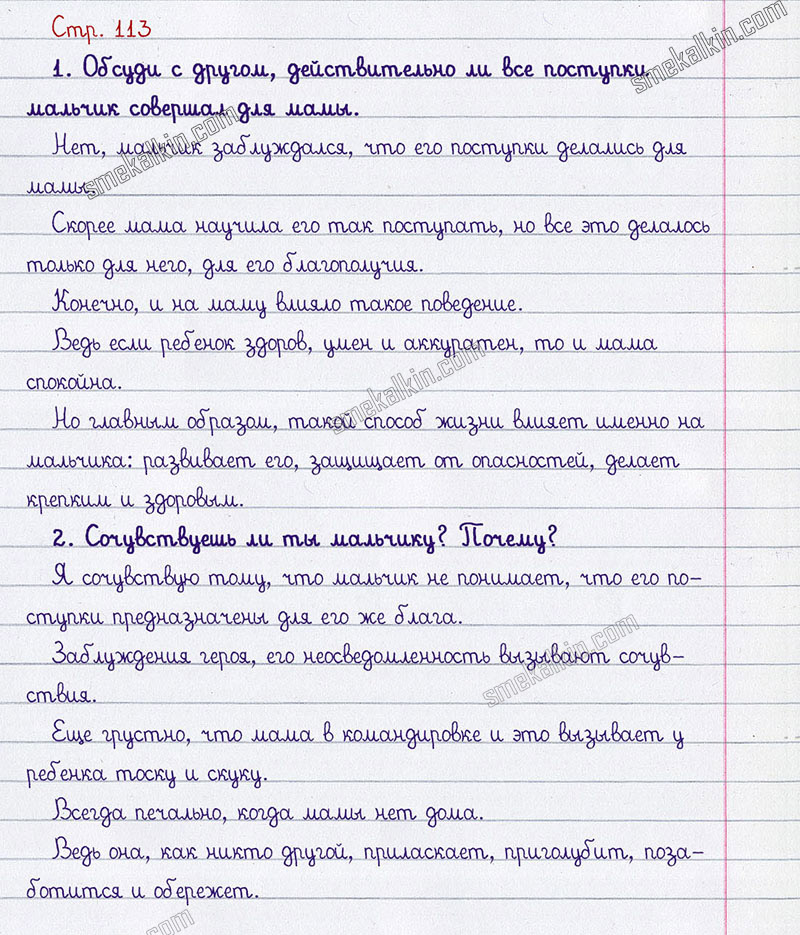 Стр. 113
1. Обсуди с другом, действительно ли все поступки
мальчик совершал для мамы.
Нет, мальчик заблуждался, что его поступки делались для
мамы.
Скорее мама научила его так поступать, но все это делалось
только для него, для его благополучия.
Конечно, и на маму влияло такое поведение.
Ведь если ребенок здоров, умен и аккуратен, то и мама
спокойна.
Но главным образом, такой способ жизни влияет именно на
мальчика: развивает его, защищает от опасностей, делает
крепким и здоровым.
2. Сочувствуешь ли ты мальчику? Почему?
Я сочувствую тому, что мальчик не понимает, что его по-
ступки предназначены для его же блага.
Заблуждения героя, его неосведомленность вызывают сочув-
ствия.
Еще грустно, что мама в командировке и это вызывает у
ребенка тоску и скуку.
Всегда печально, когда мамы нет дома.
Ведь она, как никто другой, приласкает, приголубит, поза-
ботится и обережет.
smekalkin.com
smekalkin.com
smekalkin.com
smekalkin.com